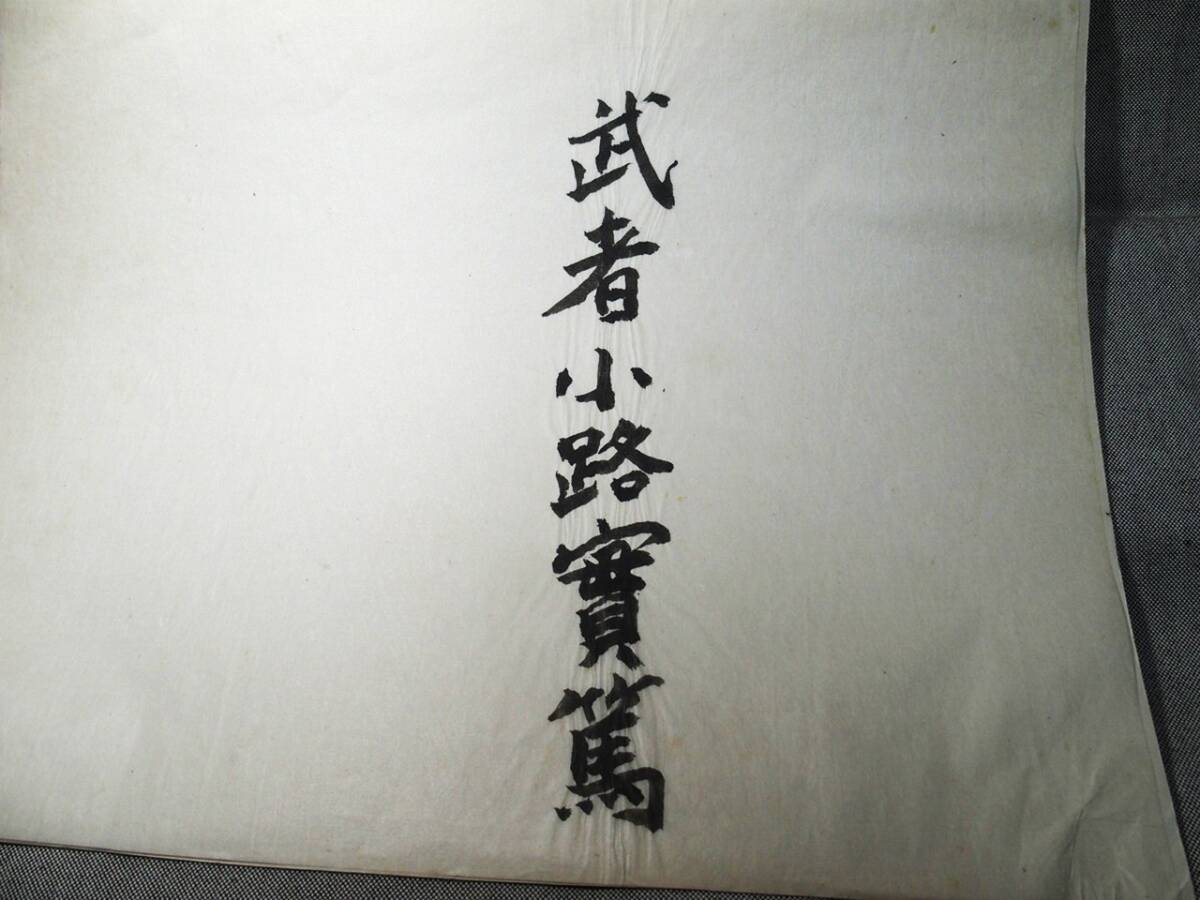 武者小路實篤